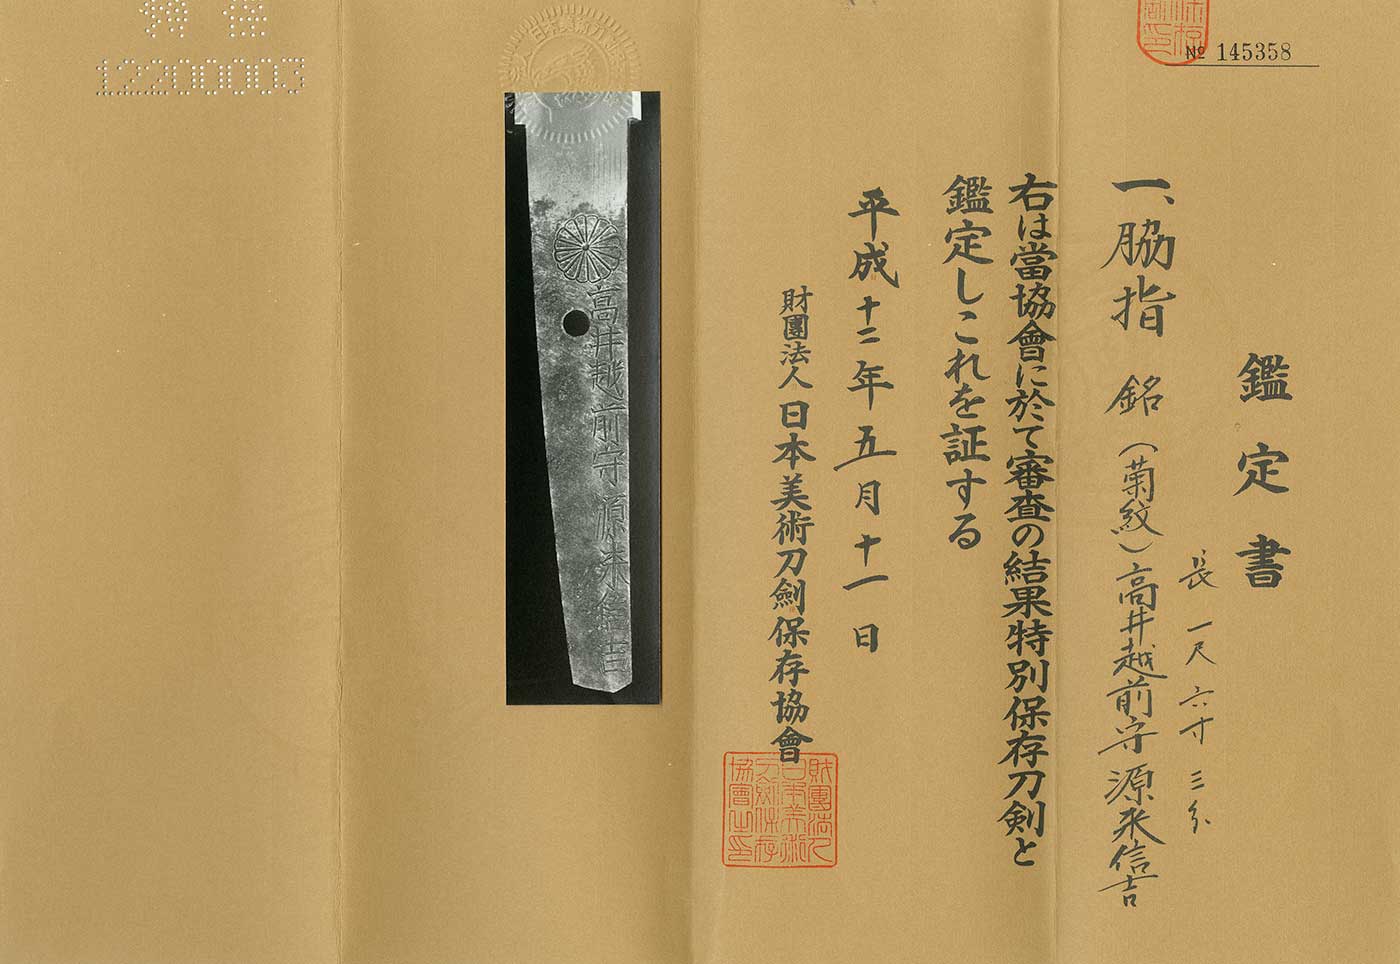 № 145358
鑑定書
一、脇指 銘(菊紋)高井越前守源来信吉
長 一尺六寸三分
右は當協會に於て審査の結果特別保存刀剣と
鑑定しこれを証する
平成十二年五月十一日
財團法人日本美術刀劍保存協會
財團法人
日本美術
刀劍保存
協會之印
高井越前守源来信吉
特保
12200003